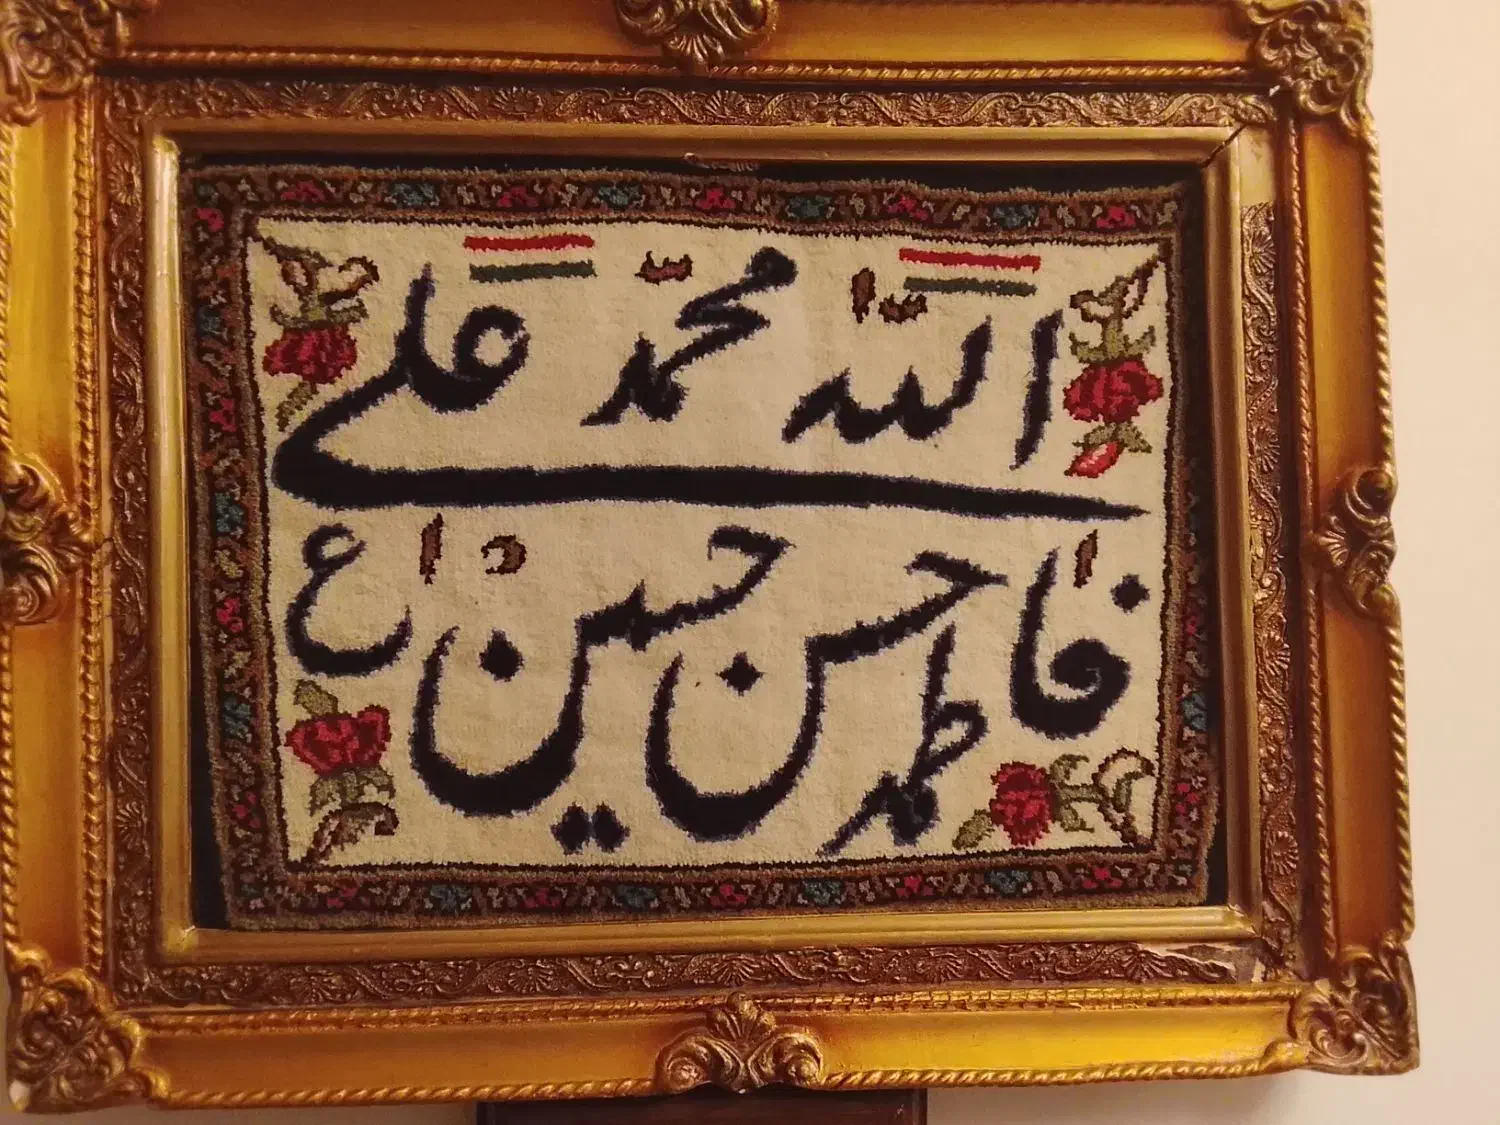 الله محمد علے
فاطمه حسن حسین ع